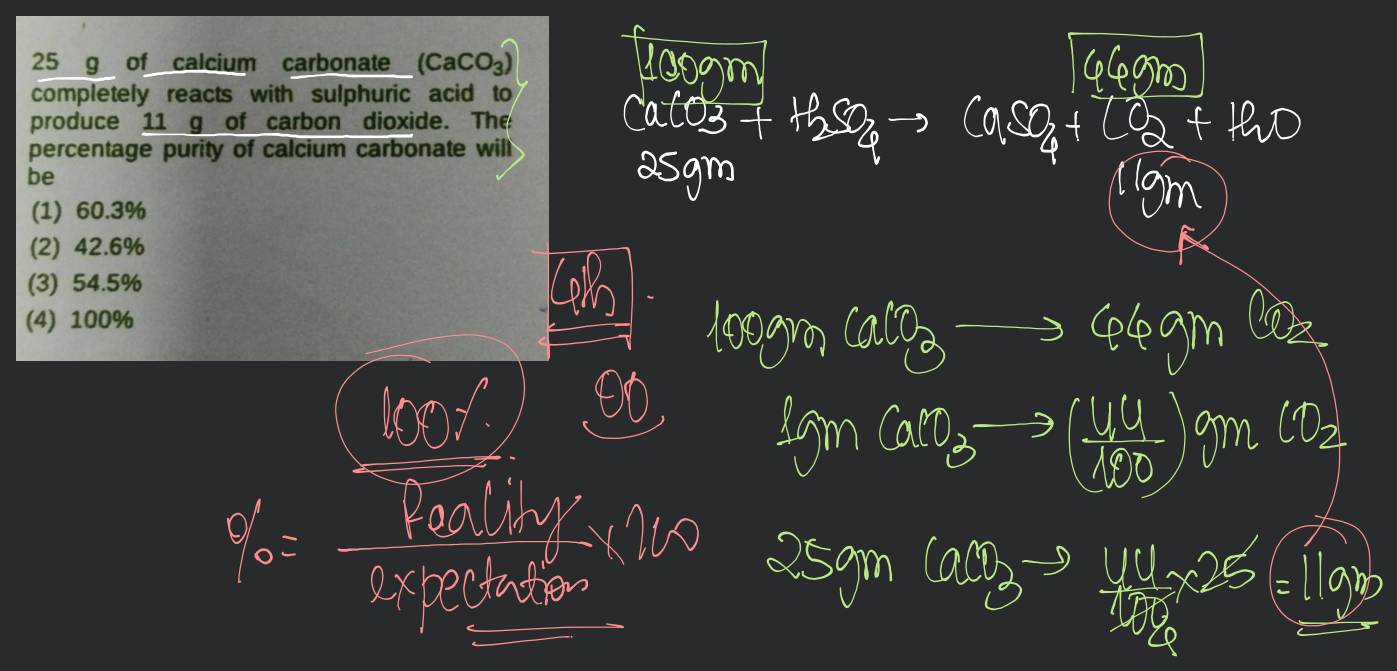 25 g of calcium carbonate (CaCO3)
completely reacts with sulphuric acid to
produce 11 g of carbon dioxide. The
percentage purity of calcium carbonate will
be
(1) 60.3%
(2) 42.6%
(3) 54.5%
(4) 100%
100gm 44gm
CaCO3 + H2SO4 → CaSO4 + CO2 + H2O
25gm 11gm
4th
100gm CaCO3 → 44gm CO2
100%
1gm CaCO3 → (44/100) gm CO2
% = Reality/expectation × 100
25gm CaCO3 → 44/100 × 25 = 11gm
4